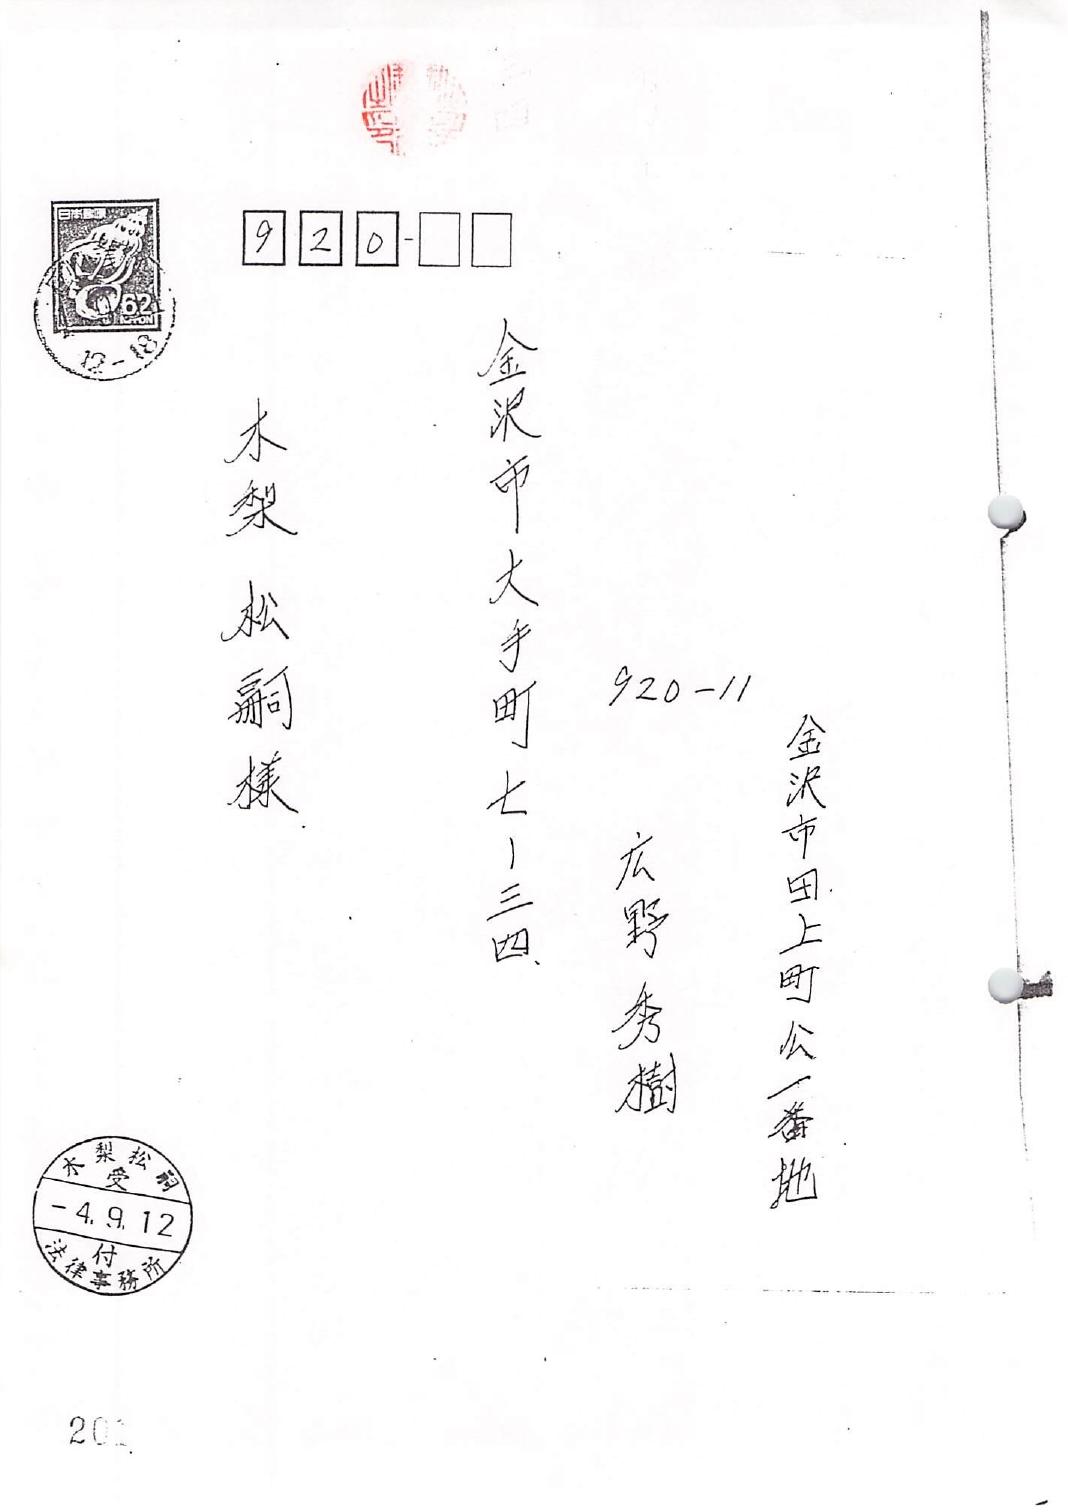 日本郵便
62
NIPPON
12-18
920-
金沢市大手町七ー三四
木梨松嗣様
920-11
金沢市田上町公一番地
広野秀樹
木梨松嗣
受
-4.9.12
付
法律事務所
20